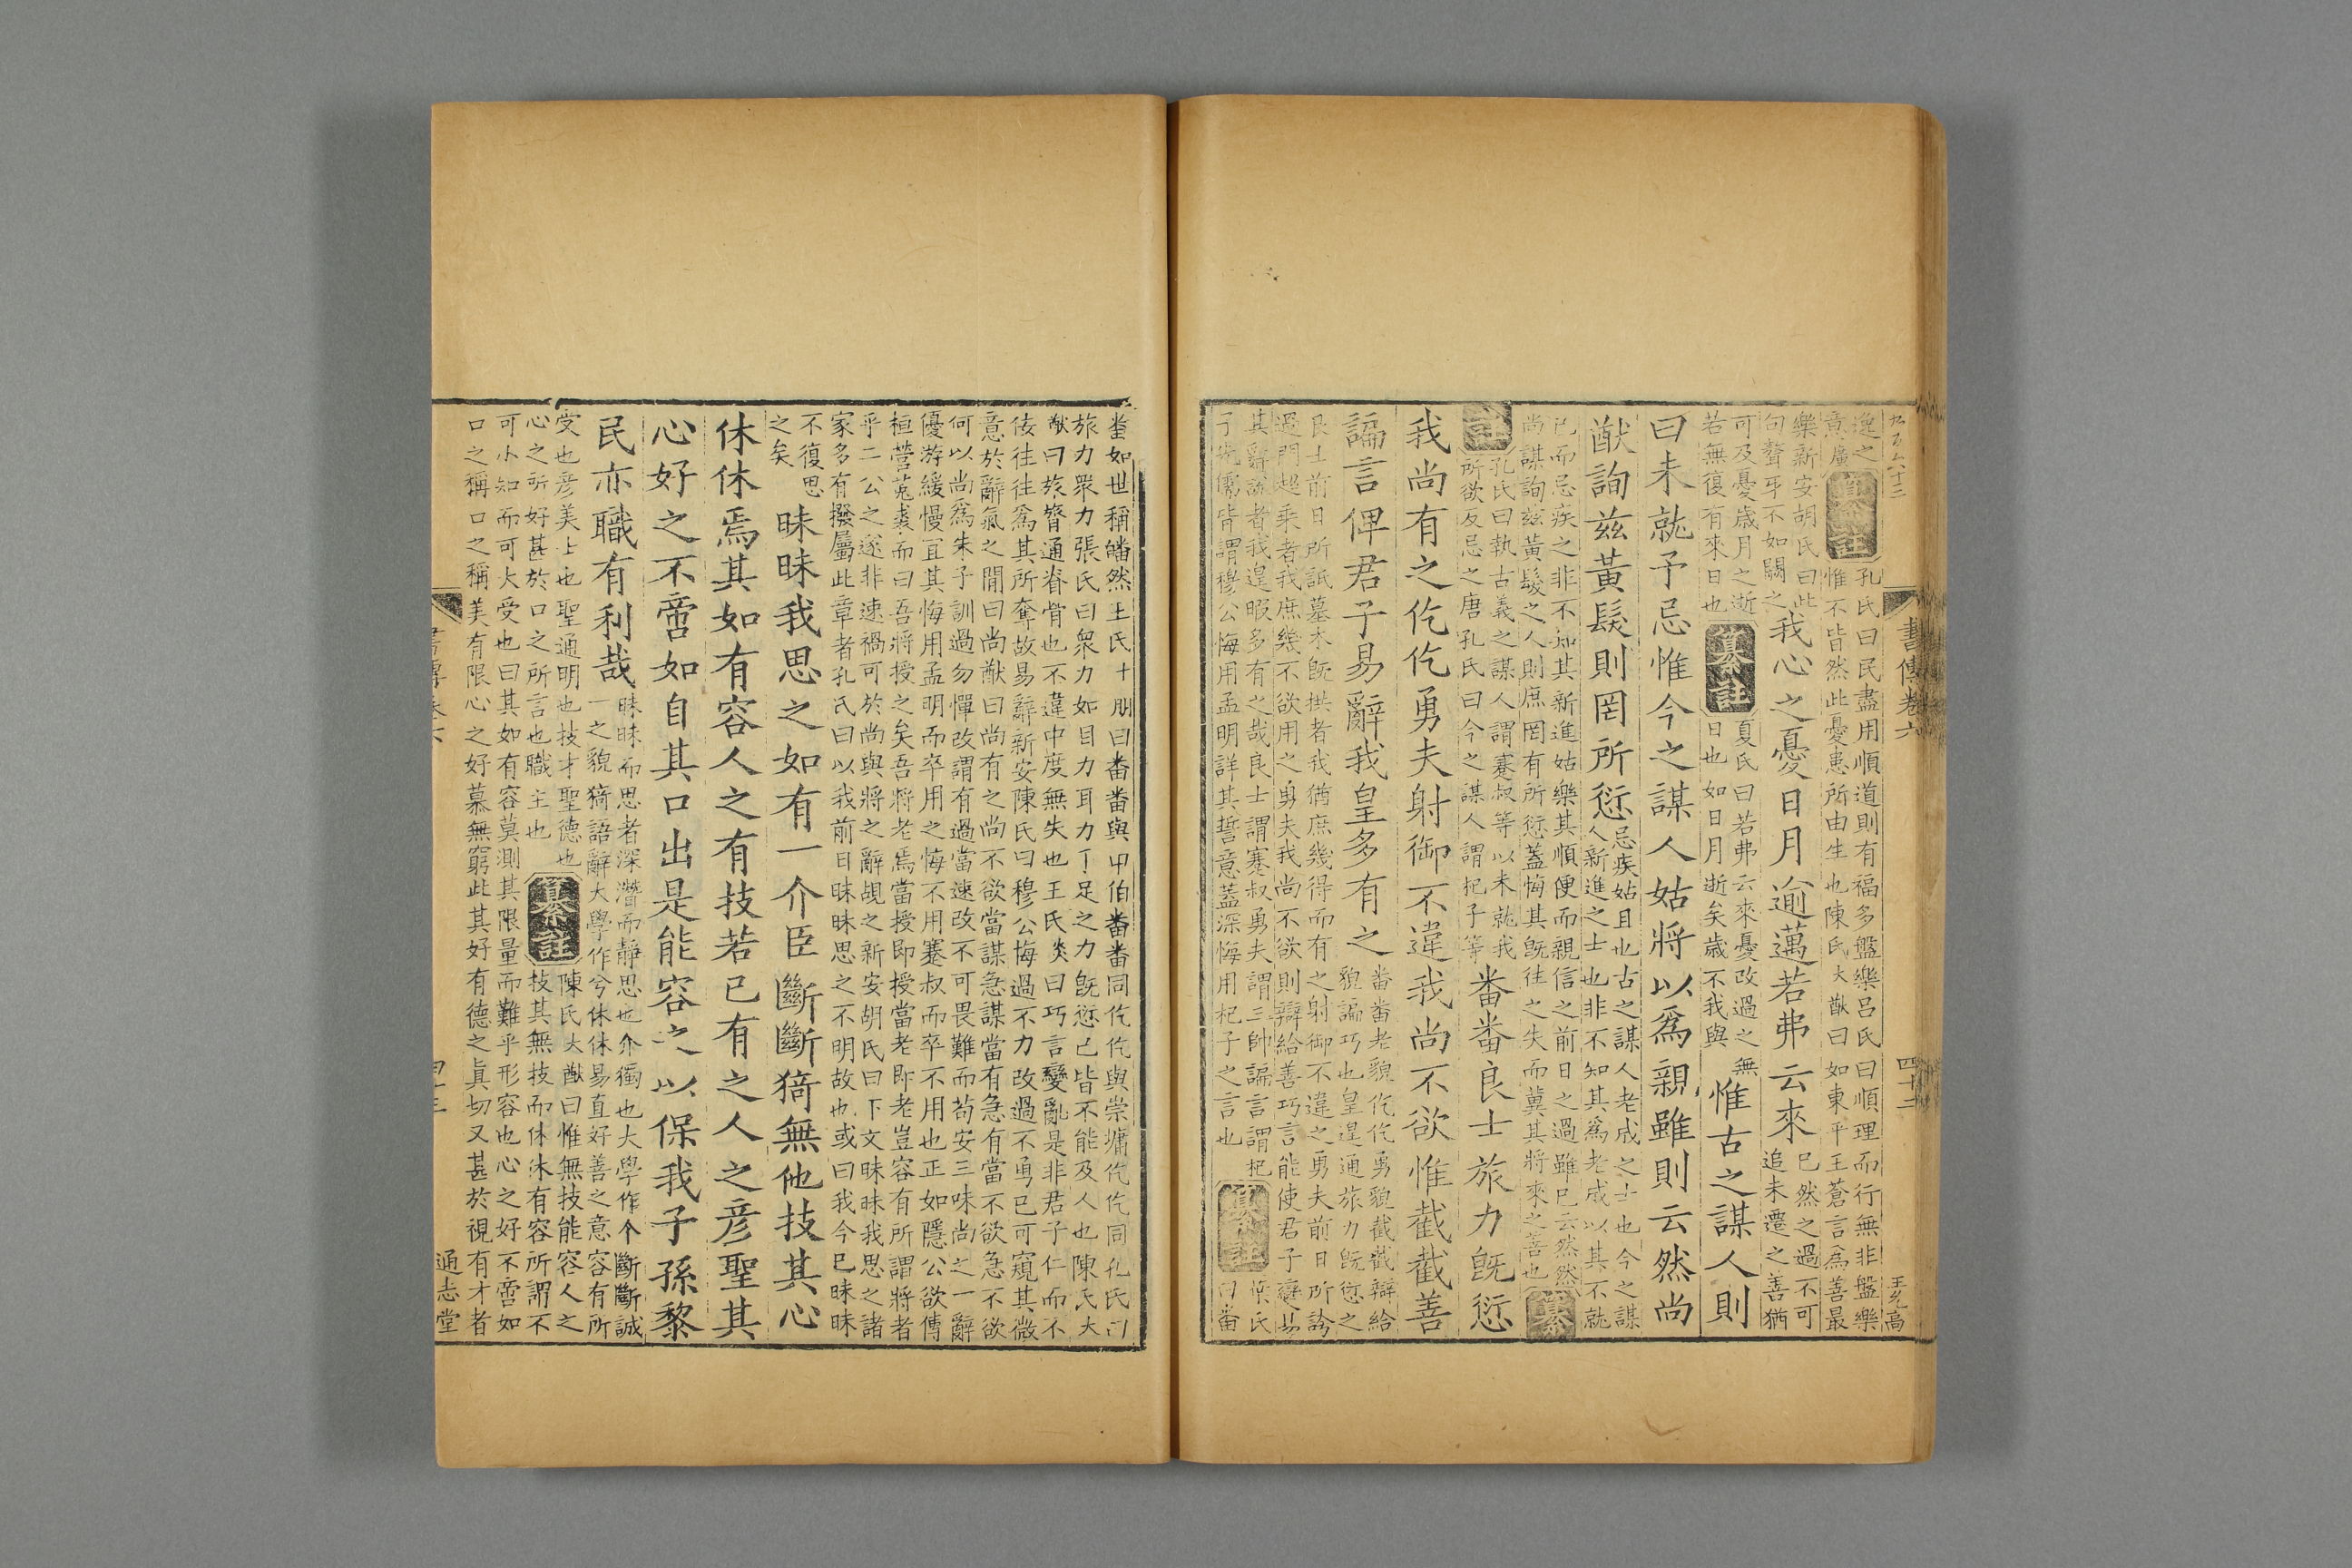 書傳卷六
四十二
逸之
意廣
纂註
孔氏曰民盡用順道則有福多盤樂呂氏曰順理而行無非盤樂
惟不皆然此憂患所由生也陳氏大猷曰如東平王蒼言爲善最
樂新安胡氏曰此
句聱牙不如闕之
我心之憂日月逾邁若弗云來
已然之過不可
追未遷之善猶
可及憂歲月之逝
若無復有來日也
纂註
夏氏曰若弗云來憂改過之無
日也如日月逝矣歲不我與
惟古之謀人則
曰未就予忌惟今之謀人姑將以爲親雖則云然尚
猷詢茲黃髮則罔所愆
忌疾姑且也古之謀人老成之士也今之謀
人新進之士也非不知其爲老成以其不就
已而忌疾之非不知其新進姑樂其順便而親信之前日之過雖已云然然
尚謀詢茲黃髮之人則庶罔有所愆蓋悔其旣往之失而冀其將來之善也
纂
註
孔氏曰執古義之謀人謂蹇叔等以未就我
所欲反忌之唐孔氏曰今之謀人謂杞子等
番番良士旅力旣愆
我尚有之仡仡勇夫射御不違我尚不欲惟截截善
諞言俾君子易辭我皇多有之
番番老貌仡仡勇貌截截辯給
貌諞巧也皇遑通旅力旣愆之
良士前日所詆墓木旣拱者我猶庶幾得而有之射御不違之勇夫前日所誇
過門超乘者我庶幾不欲用之勇夫我尚不欲則辯給善巧言能使君子變易
其辭說者我遑暇多有之哉良士謂蹇叔勇夫謂三帥諞言謂杞
子先儒皆謂穆公悔用孟明詳其誓意蓋深悔用杞子之言也
纂註
葉氏
曰番
番如世稱皤然王氏十朋曰番番與申伯番番同仡仡與崇墉仡仡同孔氏曰
旅力衆力張氏曰衆力如目力耳力手足之力旣愆已皆不能及人也陳氏大
猷曰旅膂通脊骨也不違中度無失也王氏炎曰巧言變亂是非君子仁而不
佞往往爲其所奪故易辭新安陳氏曰穆公悔過不力改過不勇已可窺其微
意於辭氣之間曰尚猷曰尚有之尚不欲當謀急謀當有急有當不欲急不欲
何以尚爲朱子訓過勿憚改謂有過當速改不可畏難而苟安三味尚之一辭
優游緩慢宜其悔用孟明而卒用之悔不用蹇叔而卒不用也正如隱公欲傳
桓營菟裘而曰吾將授之矣吾將老焉當授即授當老即老豈容有所謂將者
乎二公之遂非速禍可於尚與將之辭覘之新安胡氏曰下文昧昧我思之諸
家多有撥屬此章者孔氏曰以我前日昧昧思之不明故也或曰我今已昧昧
不復思
之矣
昧昧我思之如有一介臣斷斷猗無他技其心
休休焉其如有容人之有技若已有之人之彥聖其
心好之不啻如自其口出是能容之以保我子孫黎
民亦職有利哉
昧昧而思者深潛而靜思也介獨也大學作个斷斷誠
一之貌猗語辭大學作兮休休易直好善之意容有所
受也彥美士也聖通明也技才聖德也
心之所好甚於口之所言也職主也
纂註
陳氏大猷曰惟無技能容人之
技其無技而休休有容所謂不
可小知而可大受也曰其如有容莫測其限量而難乎形容也心之好不啻如
口之稱口之稱美有限心之好慕無窮此其好有德之眞切又甚於視有才者
通志堂